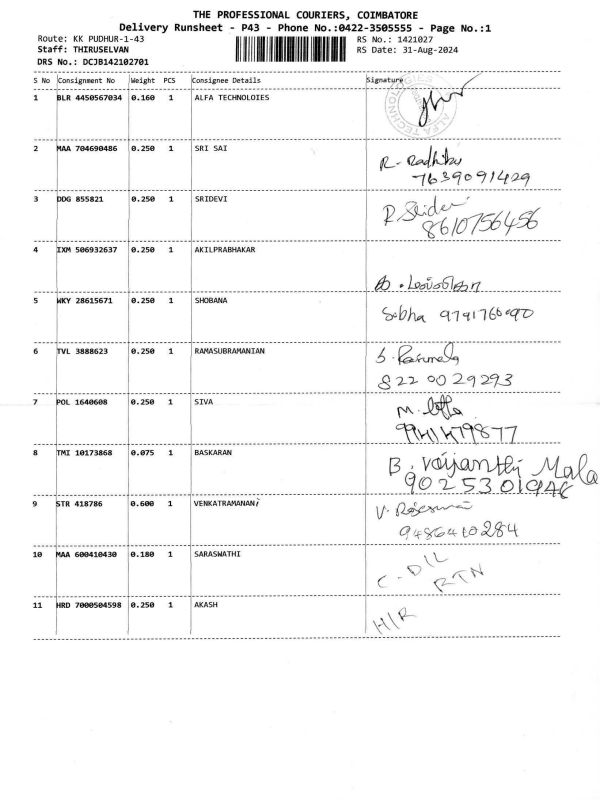 THE PROFESSIONAL COURIERS, COIMBATORE
Delivery Runsheet - P43 - Phone No.:0422-3505555 - Page No.:1
Route: KK PUDHUR-1-43 RS No.: 1421027
Staff: THIRUSELVAN RS Date: 31-Aug-2024
DRS No.: DCJB142102701
S No Consignment No Weight PCS Consignee Details Signature
1 BLR 4450567034 0.160 1 ALFA TECHNOLOIES
2 MAA 704690486 0.250 1 SRI SAI R. Radhika
7639091429
3 DDG 855821 0.250 1 SRIDEVI R. Sridevi
8610756456
4 IXM 506932637 0.250 1 AKILPRABHAKAR
5 WKY 28615671 0.250 1 SHOBANA Sobha
6 TVL 3888623 0.250 1 RAMASUBRAMANIAN
8220029293
7 POL 1640608 0.250 1 SIVA M.
8 TMI 10173868 0.075 1 BASKARAN B. Vaijanthi Mala
9025301946
9 STR 418786 0.600 1 VENKATRAMANAN; V.
9486410284
10 MAA 600410430 0.180 1 SARASWATHI C-DIL
RTN
11 HRD 7000504598 0.250 1 AKASH H/R